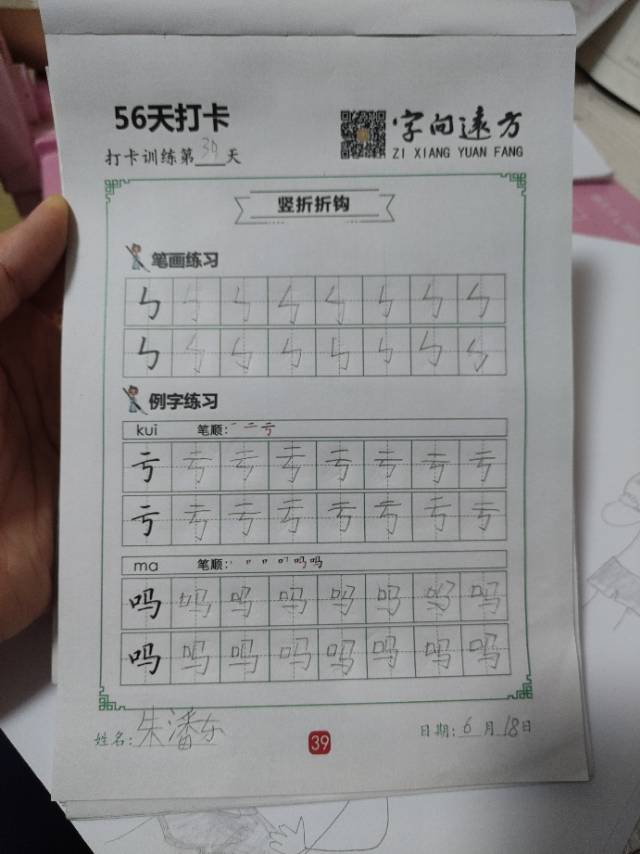 56天打卡
字向遠方
打卡训练第39天
ZI XIANG YUAN FANG
竖折折钩
笔画练习
ㄣ ㄣ ㄣ ㄣ ㄣ ㄣ ㄣ ㄣ
ㄣ ㄣ ㄣ ㄣ ㄣ ㄣ ㄣ ㄣ
例字练习
kui 笔顺: 一 二 亏
亏 亏 亏 亏 亏 亏 亏 亏
亏 亏 亏 亏 亏 亏 亏 亏
ma 笔顺: 丨 𠃍 口 吗 吗
吗 吗 吗 吗 吗 吗 吗 吗
吗 吗 吗 吗 吗 吗 吗 吗
姓名:朱潘东 39 日期:6月18日